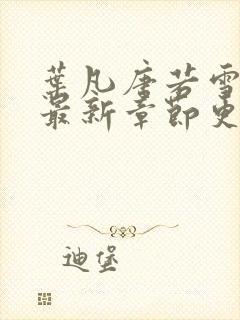 叶凡唐若雪
最新章节更
迪堡